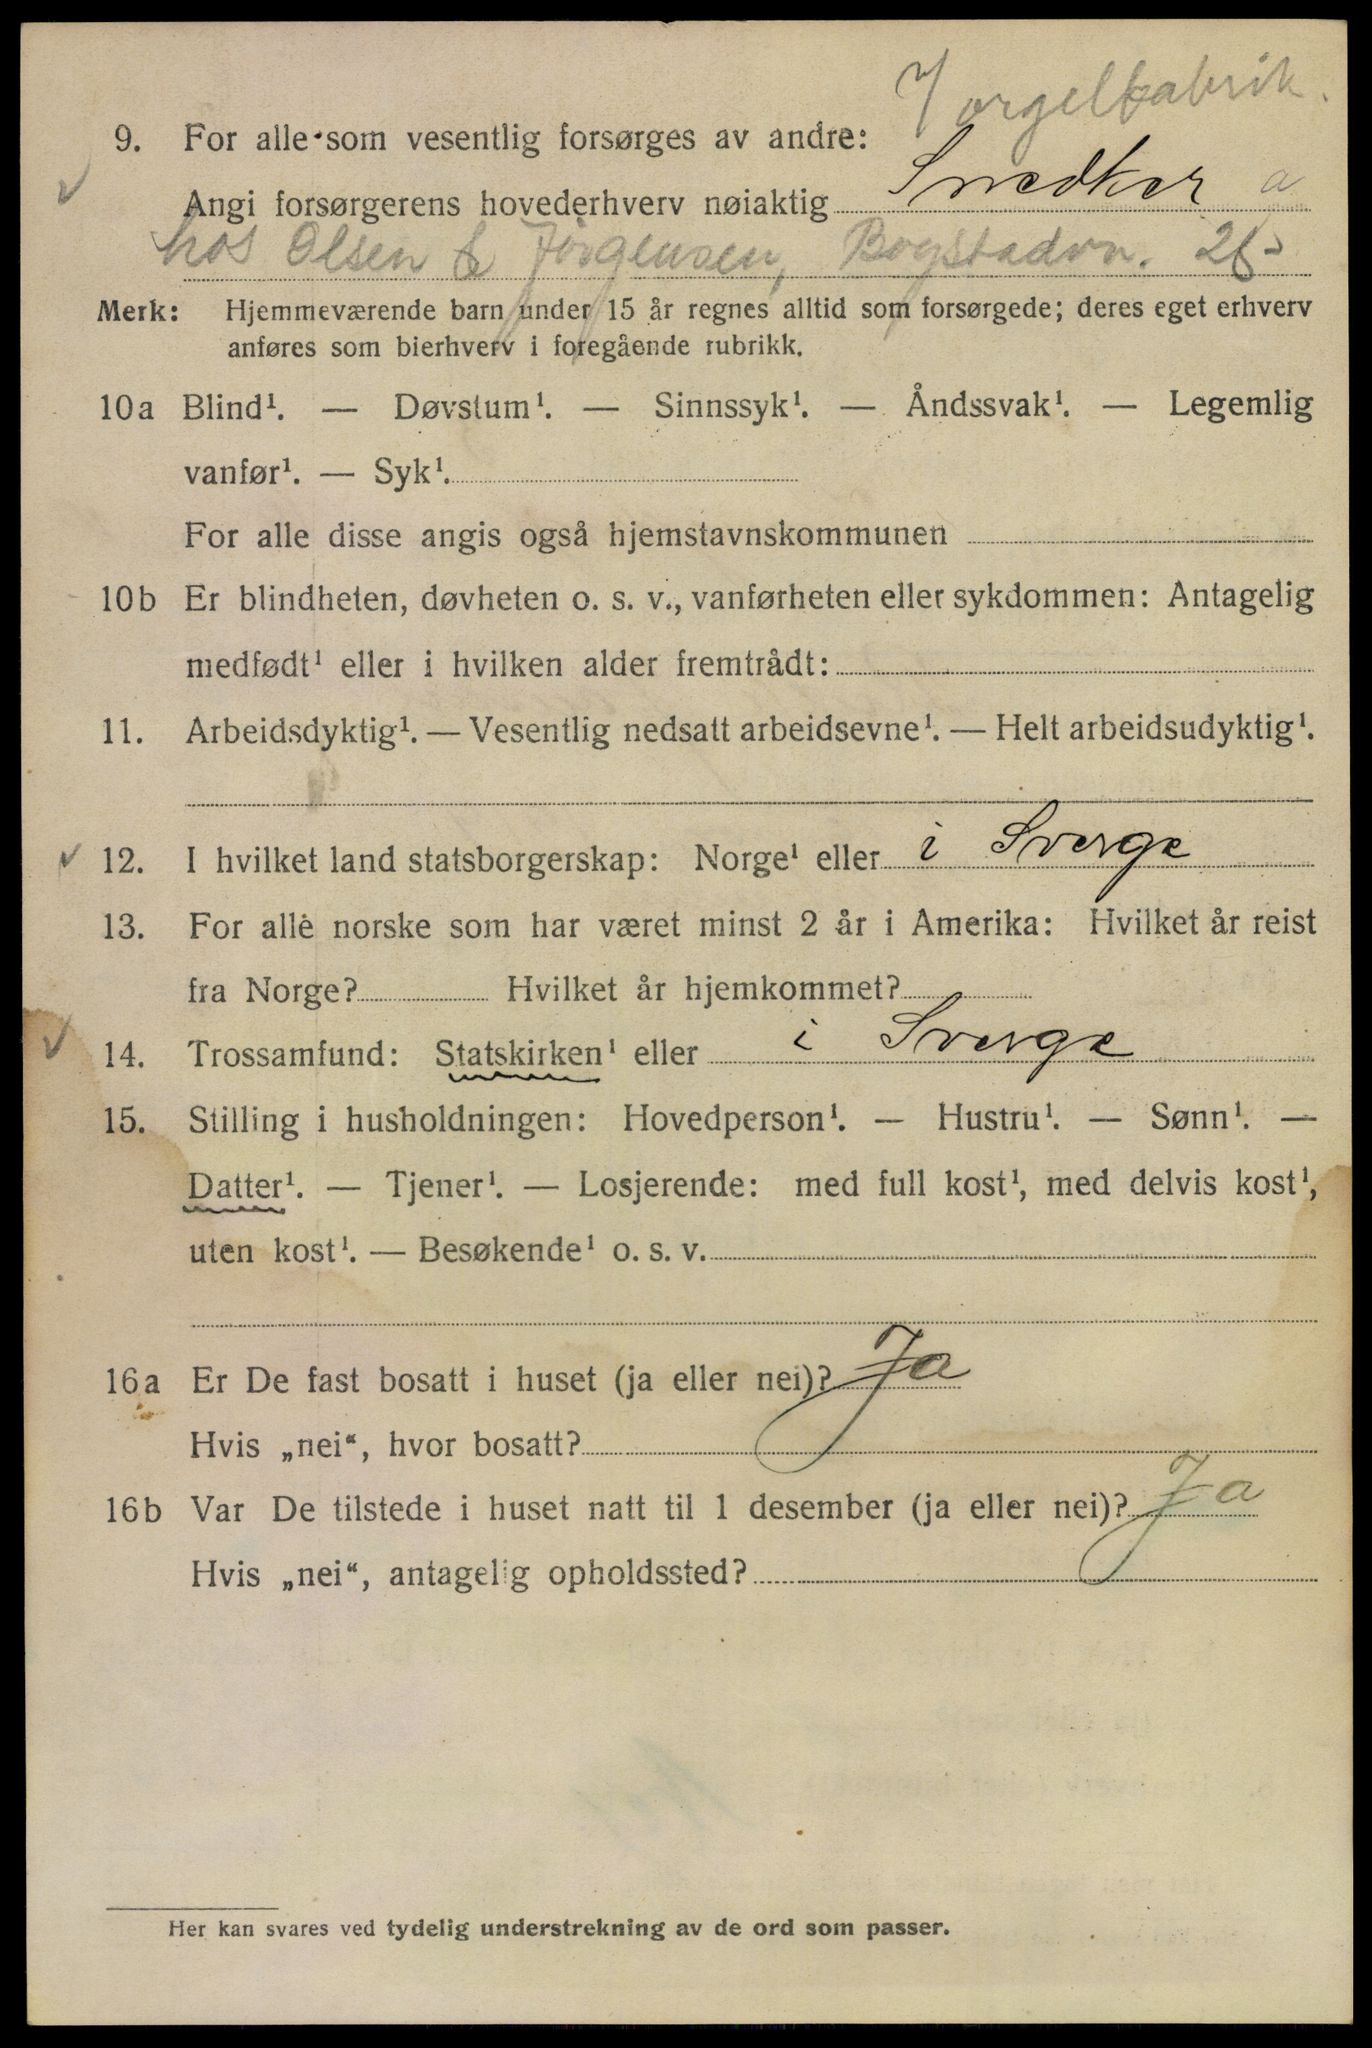 orgelfabrik.
9. For alle som vesentlig forsørges av andre:
Angi forsørgerens hovederhverv nøiaktig Snedker a
hos Olsen & Jörgensen, Bogstadvn.
Merk: Hjemmeværende barn under 15 år regnes alltid som forsørgede; deres eget erhverv
anføres som bierhverv i foregående rubrikk.
10a Blind¹. — Døvstum¹. — Sinnssyk¹. — Åndssvak¹. — Legemlig
vanfør¹. — Syk¹.
For alle disse angis også hjemstavnskommunen
10b Er blindheten, døvheten o. s. v., vanførheten eller sykdommen: Antagelig
medfødt¹ eller i hvilken alder fremtrådt:
11. Arbeidsdyktig¹. — Vesentlig nedsatt arbeidsevne¹. — Helt arbeidsudyktig¹.
12. I hvilket land statsborgerskap: Norge¹ eller i Sverge
13. For alle norske som har været minst 2 år i Amerika: Hvilket år reist
fra Norge? Hvilket år hjemkommet?
14. Trossamfund: Statskirken¹ eller i Sverge
15. Stilling i husholdningen: Hovedperson¹. — Hustru¹. — Sønn¹. —
Datter¹. — Tjener¹. — Losjerende: med full kost¹, med delvis kost¹,
uten kost¹. — Besøkende¹ o. s. v.
16a Er De fast bosatt i huset (ja eller nei)? Ja
Hvis „nei“, hvor bosatt?
16b Var De tilstede i huset natt til 1 desember (ja eller nei)? Ja
Hvis „nei“, antagelig opholdssted?
Her kan svares ved tydelig understrekning av de ord som passer.